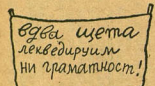 вдва щета
леквєдируим
ни граматност!